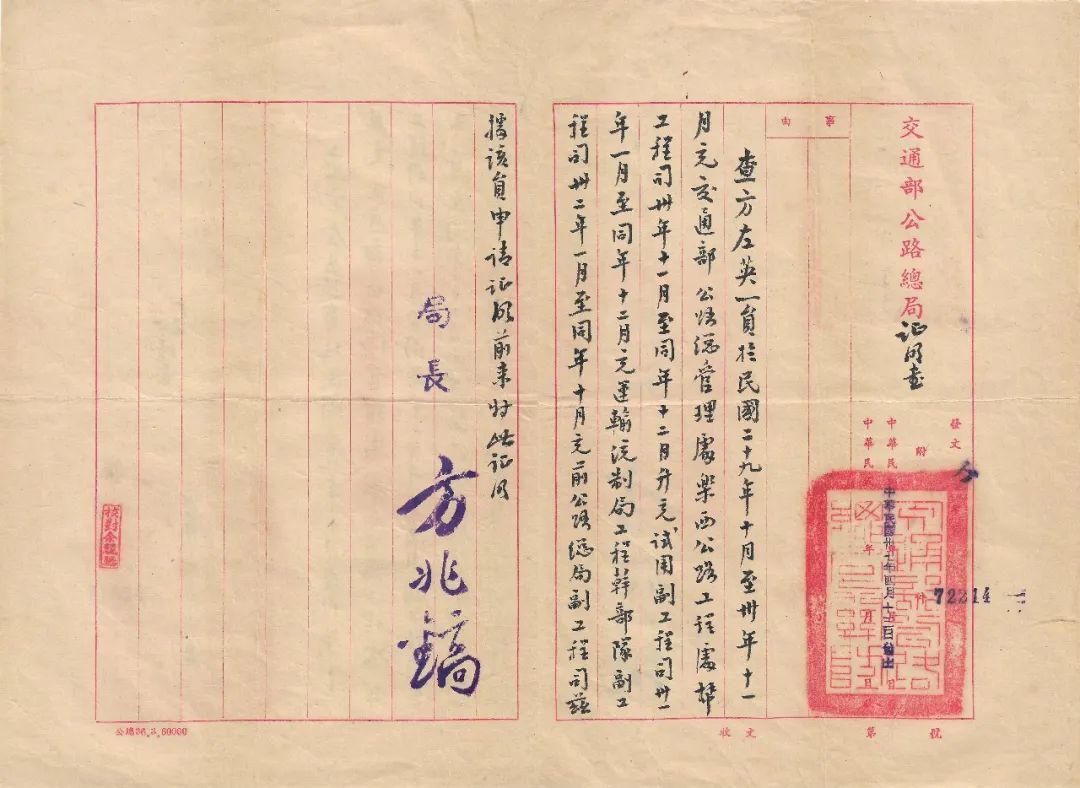 交通部公路總局证明書
發文
附
中華民
中華民
年月日
事由
查方左英一員於民國二十九年十月至卅年十一
月充交通部公路總管理處樂西公路工程處幫
工程司卅年十一月至同年十二月升充試用副工程司卅一
年一月至同年十二月充運輸統制局工程幹部隊副工
程司卅二年一月至同年十月充前公路總局副工程司茲
據該員申請证明前来特此证明
局長 方兆鎬
校對
公總36.3.60000
收文
第 號